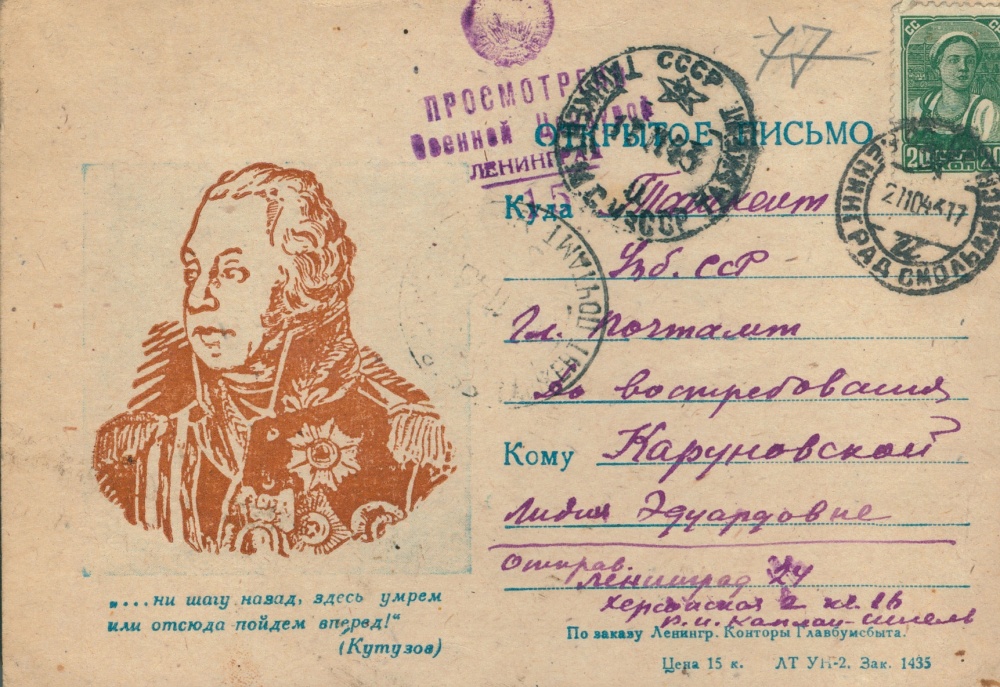 77
СССР
20 20
КОП
ПРОСМОТРЕНО
Военной Цензурой
ЛЕНИНГРАД
15
ТАШКЕНТ СССР
УзССР
ОТКРЫТОЕ ПИСЬМО
ЛЕНИНГРАД СМОЛЬНИН
ПОЧТАМТ
Куда Ташкент
Узб. ССР
Гл. Почтамт
До востребования
Кому Каруновской
Лидии Эдуардовне
Отправ.
Ленинград 24
Херсонская 2 кв. 26
Р. И. Каплан-Ингель
„...ни шагу назад, здесь умрем
или отсюда пойдем вперед!“
(Кутузов)
По заказу Ленингр. Конторы Главбумсбыта.
Цена 15 к. ЛТ УН-2. Зак. 1435